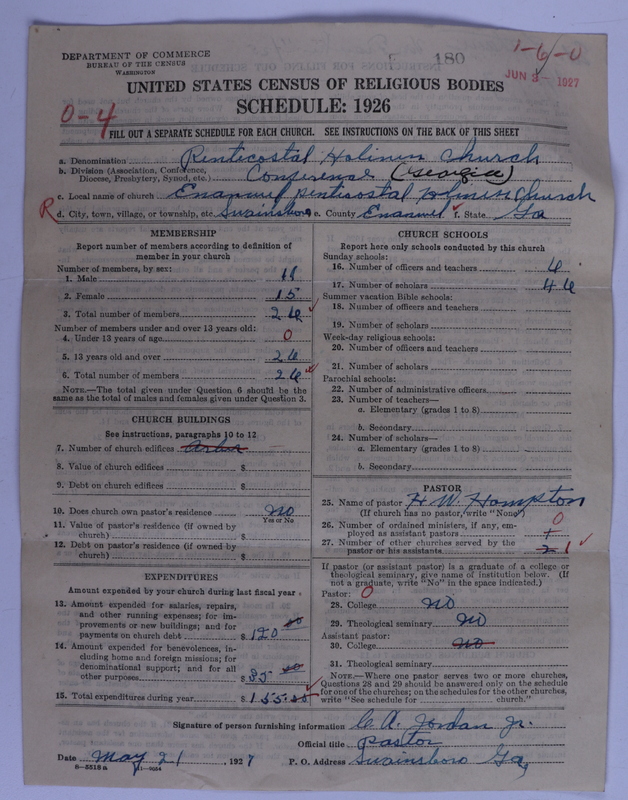 DEPARTMENT OF COMMERCE
BUREAU OF THE CENSUS
WASHINGTON
180
1-6-0
JUN 3 - 1927
UNITED STATES CENSUS OF RELIGIOUS BODIES
SCHEDULE: 1926
0-4
FILL OUT A SEPARATE SCHEDULE FOR EACH CHURCH. SEE INSTRUCTIONS ON THE BACK OF THIS SHEET
a. Denomination Penticostal Holiness Church
b. Division (Association, Conference, Diocese, Presbytery, Synod, etc.) Conference (Georgia)
c. Local name of church Emanuel Penticostal Holiness Church
R d. City, town, village, or township, etc. Swainsboro e. County Emanuel f. State Ga
MEMBERSHIP
Report number of members according to definition of member in your church
Number of members, by sex:
1. Male 11
2. Female 15
3. Total number of members 26
Number of members under and over 13 years old:
4. Under 13 years of age 0
5. 13 years old and over 26
6. Total number of members 26
NOTE.—The total given under Question 6 should be the same as the total of males and females given under Question 3.
CHURCH BUILDINGS
See instructions, paragraphs 10 to 12
7. Number of church edifices Arbor
8. Value of church edifices $
9. Debt on church edifices $
10. Does church own pastor's residence No
Yes or No
11. Value of pastor's residence (if owned by church) $
12. Debt on pastor's residence (if owned by church) $
EXPENDITURES
Amount expended by your church during last fiscal year
13. Amount expended for salaries, repairs, and other running expenses; for improvements or new buildings; and for payments on church debt $ 120 00
14. Amount expended for benevolences, including home and foreign missions; for denominational support; and for all other purposes $ 35 00
15. Total expenditures during year $ 155.00
CHURCH SCHOOLS
Report here only schools conducted by this church
Sunday schools:
16. Number of officers and teachers 6
17. Number of scholars 46
Summer vacation Bible schools:
18. Number of officers and teachers
19. Number of scholars
Week-day religious schools:
20. Number of officers and teachers
21. Number of scholars
Parochial schools:
22. Number of administrative officers
23. Number of teachers—
a. Elementary (grades 1 to 8)
b. Secondary
24. Number of scholars—
a. Elementary (grades 1 to 8)
b. Secondary
PASTOR
25. Name of pastor H. W. Hampton
(If church has no pastor, write "None")
26. Number of ordained ministers, if any, employed as assistant pastors 0
27. Number of other churches served by the pastor or his assistants 2 1
If pastor (or assistant pastor) is a graduate of a college or theological seminary, give name of institution below. (If not a graduate, write "No" in the space indicated.)
Pastor: 0
28. College No
29. Theological seminary No
Assistant pastor:
30. College No
31. Theological seminary
NOTE.—Where one pastor serves two or more churches, Questions 28 and 29 should be answered only on the schedule for one of the churches; on the schedules for the other churches, write "See schedule for church."
Signature of person furnishing information C. A. Jordan Jr.
Official title Pastor
Date May 21, 1927 P. O. Address Swainsboro Ga,
8—5518a 11—9024